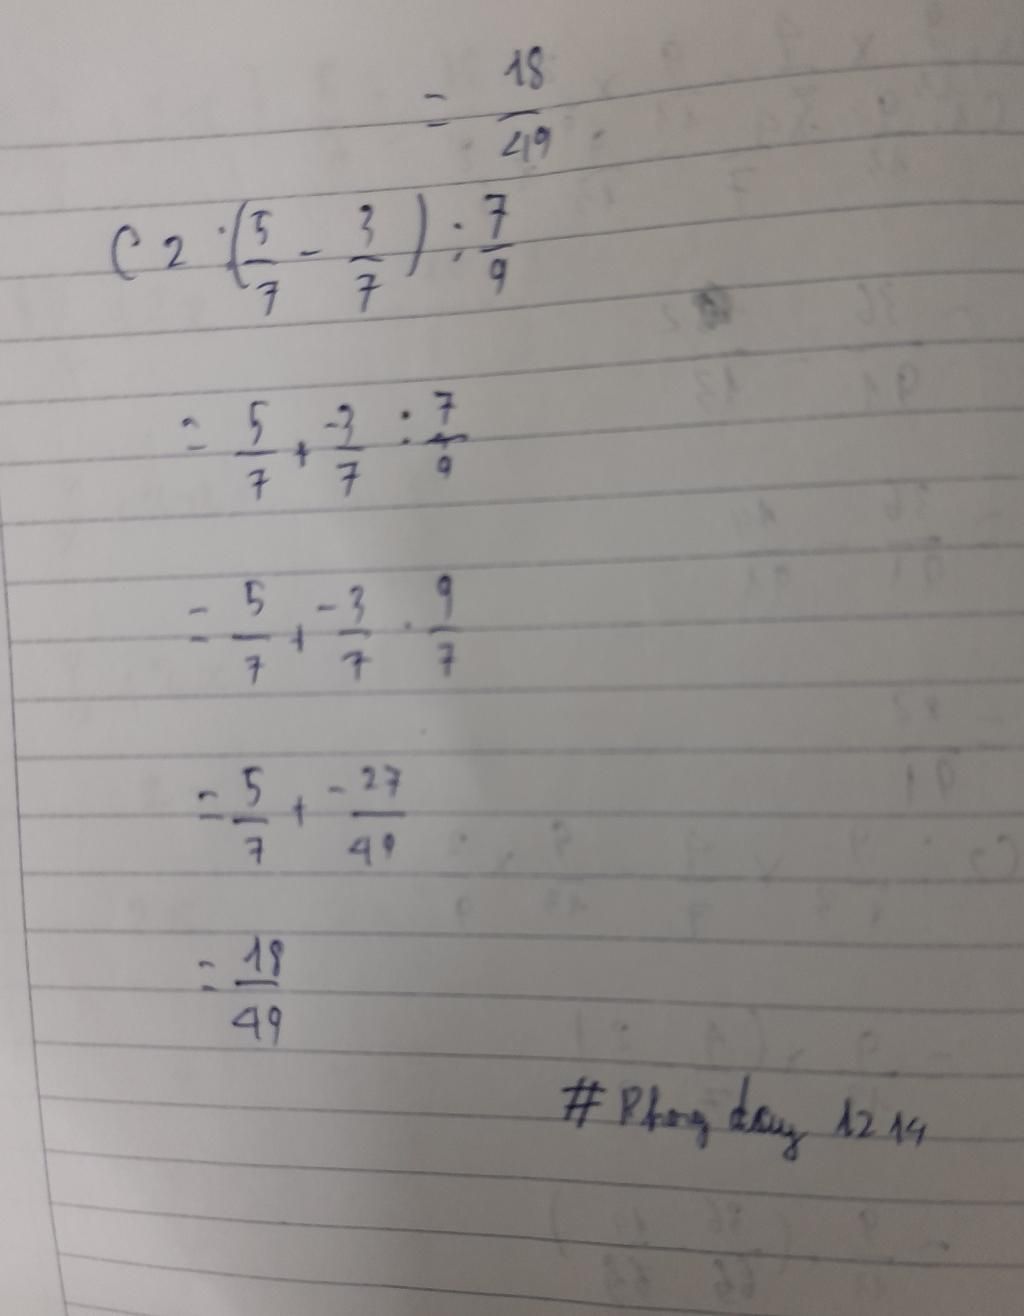 = 18/49
C2 : (5/7 - 3/7) : 7/9
= 5/7 + -3/7 : 7/9
= 5/7 + -3/7 . 9/7
= 5/7 + -27/49
= 18/49
# Phong đây 1214